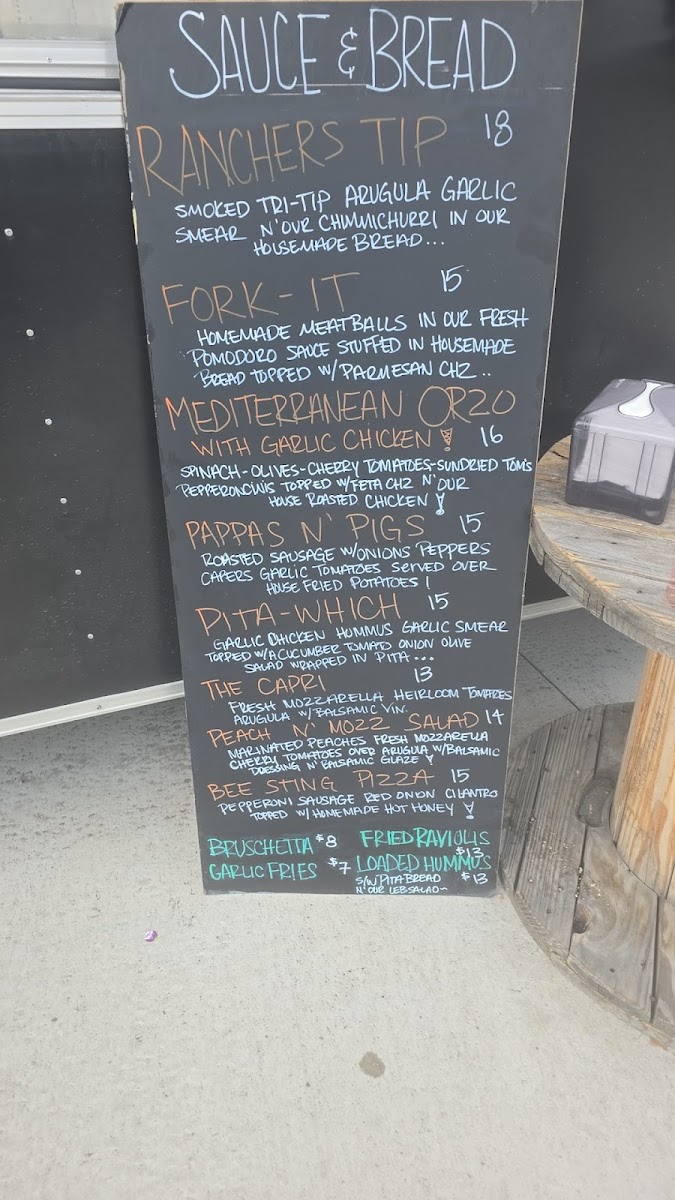 SAUCE & BREAD
RANCHERS TIP 18
SMOKED TRI-TIP ARUGULA GARLIC
SMEAR N'OUR CHIMMICHURRI IN OUR
HOUSEMADE BREAD...
FORK-IT 15
HOMEMADE MEATBALLS IN OUR FRESH
POMODORO SAUCE STUFFED IN HOUSEMADE
BREAD TOPPED W/PARMESAN CHZ..
MEDITERRANEAN ORZO
WITH GARLIC CHICKEN! 16
SPINACH-OLIVES-CHERRY TOMATOES-SUNDRIED TOM'S
PEPPERONCINIS TOPPED W/FETA CHZ N'OUR
HOUSE ROASTED CHICKEN!
PAPPAS N' PIGS 15
ROASTED SAUSAGE W/ONIONS PEPPERS
CAPERS GARLIC TOMATOES SERVED OVER
HOUSE FRIED POTATOES!
PITA-WHICH 15
GARLIC CHICKEN HUMMUS GARLIC SMEAR
TOPPED W/A CUCUMBER TOMATO ONION OLIVE
SALAD WRAPPED IN PITA...
THE CAPRI 13
FRESH MOZZARELLA HEIRLOOM TOMATOES
ARUGULA W/BALSAMIC VIN.
PEACH N' MOZZ SALAD 14
MARINATED PEACHES FRESH MOZZARELLA
CHERRY TOMATOES OVER ARUGULA W/BALSAMIC
DRESSING N' BALSAMIC GLAZE!
BEE STING PIZZA 15
PEPPERONI SAUSAGE RED ONION CILANTRO
TOPPED W/HOMEMADE HOT HONEY!
BRUSCHETTA $8
GARLIC FRIES $7
FRIED RAVIOLIS
$13
LOADED HUMMUS
S/W PITA BREAD $13
N'OUR LEB SALAD~